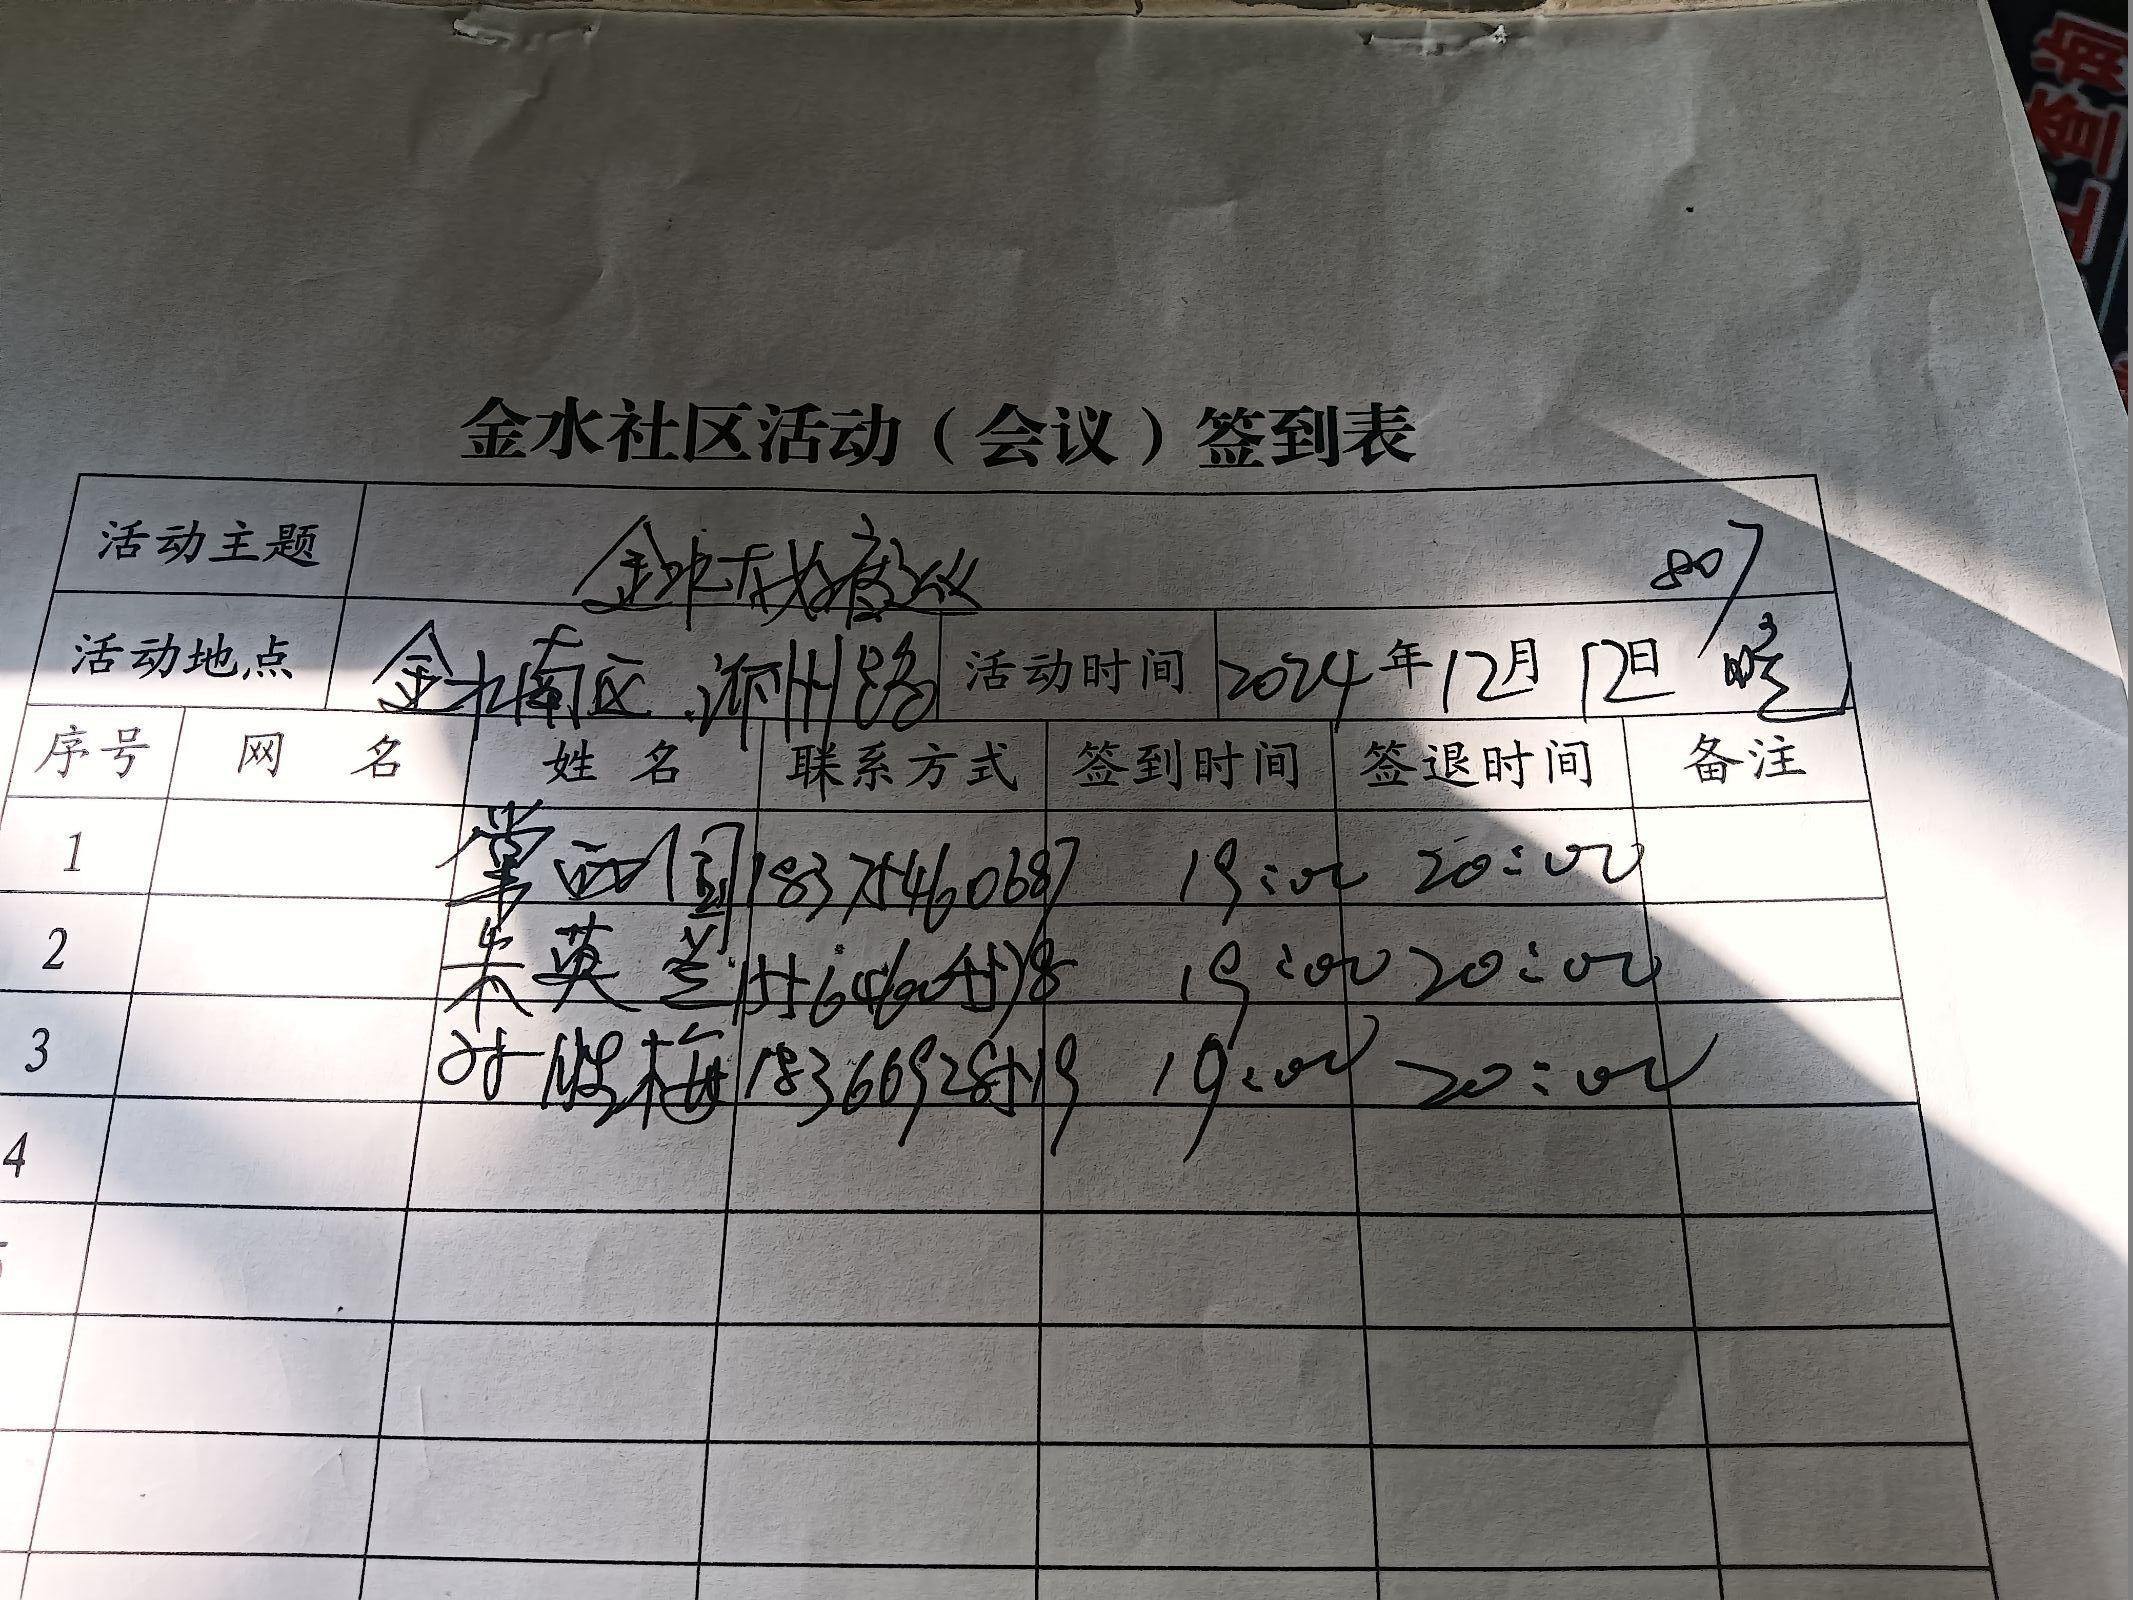 金水社区活动（会议）签到表
活动主题 807
活动地点 金水南区 路 活动时间 2024年12月12日 晚
序号 网 名 姓 名 联系方式 签到时间 签退时间 备注
1 18375460687 19:00 20:00
2 朱英兰 19:00 20:00
3 梅 18366928519 19:00 20:00
4
查询